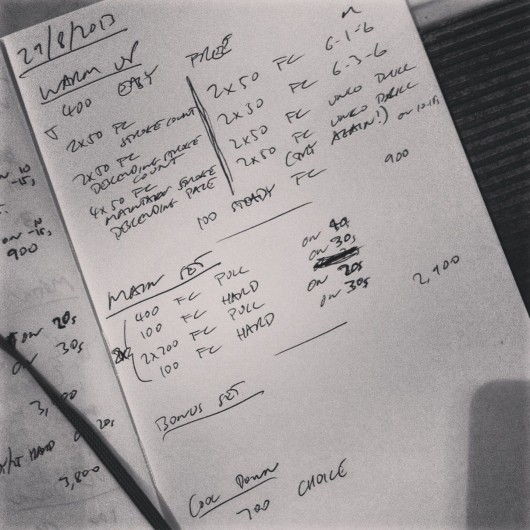 29/8/2013
WARM UP
400 EASY
2x50 FC STROKE COUNT
2x50 FC DESCENDING STROKE COUNT
4x50 FC MAINTAIN STROKE DESCENDING PACE
2x50 FC 6-1-6
2x50 FC 6-3-6
2x50 FC UNCO DRILL
2x50 FC UNCO DRILL
(SORT AGAIN!) ON 10-15s
100 STEADY FC 900
MAIN SET
400 FC PULL ON 40
100 FC HARD ON 30s
2x200 FC PULL ON 20s
100 FC HARD ON 30s
2,900
BONUS SET
COOL DOWN
700 CHOICE
ON 10
-15s
ON 10
-15s
900
ON 20s
ON 30s
HARD
20s
3,800